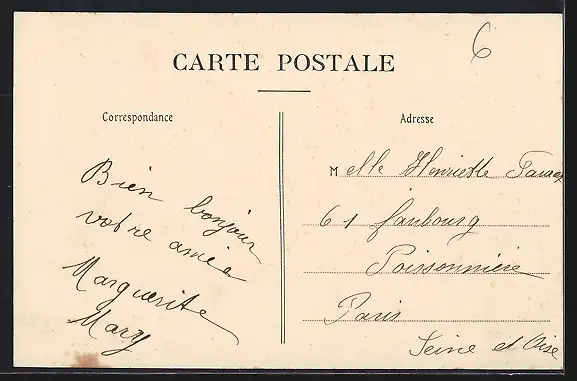 6
CARTE POSTALE
Correspondance
Bien bonjour
votre amie
Marguerite
Mary
Adresse
Melle Henriette
61 faubourg
Poissonnière
Paris
Seine et Oise